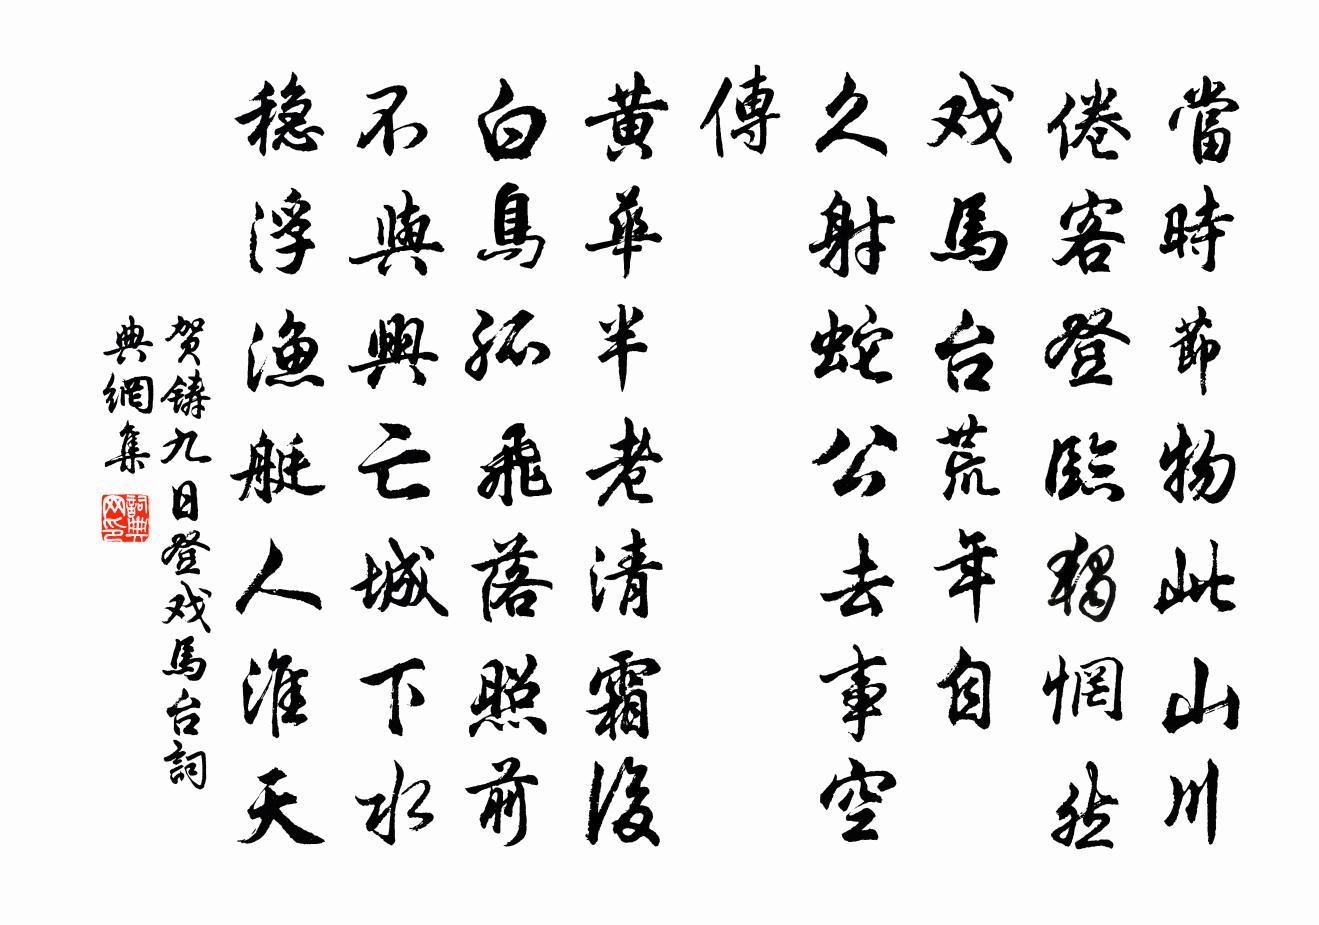 當時節物此山川
倦客登臨獨惘然
戏馬台荒年自
久射蛇公去事空
傳
黃華半老清霜後
白鳥孤飛落照前
不與興亡城下水
稳浮漁艇人淮天
賀鑄九日登戏馬台詞
典網集
詞典网印